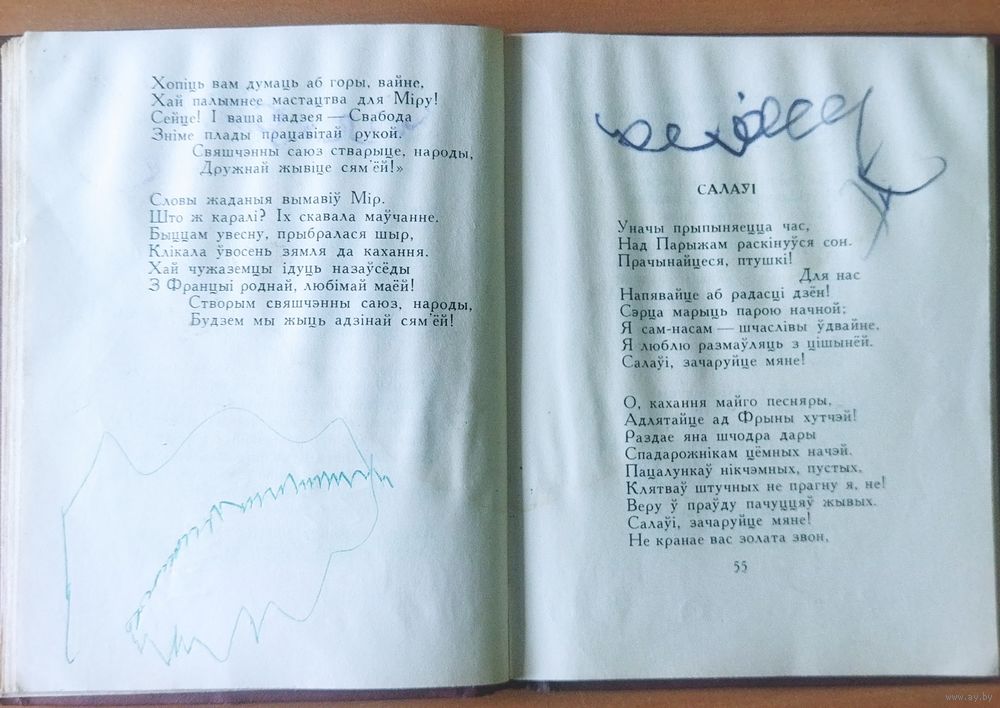 Хопіць вам думаць аб горы, вайне,
Хай палымнее мастацтва для Міру!
Сейце! І ваша надзея — Свабода
Зніме плады працавітай рукой.
Свяшчэнны саюз стварыце, народы,
Дружнай жывіце сям'ёй!»
Словы жаданыя вымавіў Мір.
Што ж каралі? Іх скавала маўчанне.
Быццам увесну, прыбралася шыр,
Клікала ўвосень зямля да кахання.
Хай чужаземцы ідуць назаўсёды
З Францыі роднай, любімай маёй!
Створым свяшчэнны саюз, народы,
Будзем мы жыць адзінай сям'ёй!
САЛАЎІ
Уначы прыпыняецца час,
Над Парыжам раскінуўся сон.
Прачынайцеся, птушкі!
Для нас
Напявайце аб радасці дзён!
Сэрца марыць парою начной;
Я сам-насам — шчаслівы ўдвайне.
Я люблю размаўляць з цішынёй.
Салаўі, зачаруйце мяне!
О, кахання майго песняры,
Адлятайце ад Фрыны хутчэй!
Раздае яна шчодра дары
Спадарожнікам цёмных начэй.
Пацалункаў нікчэмных, пустых,
Клятваў штучных не прагну я, не!
Веру ў праўду пачуццяў жывых.
Салаўі, зачаруйце мяне!
Не кранае вас золата звон,
55
www.ay.by